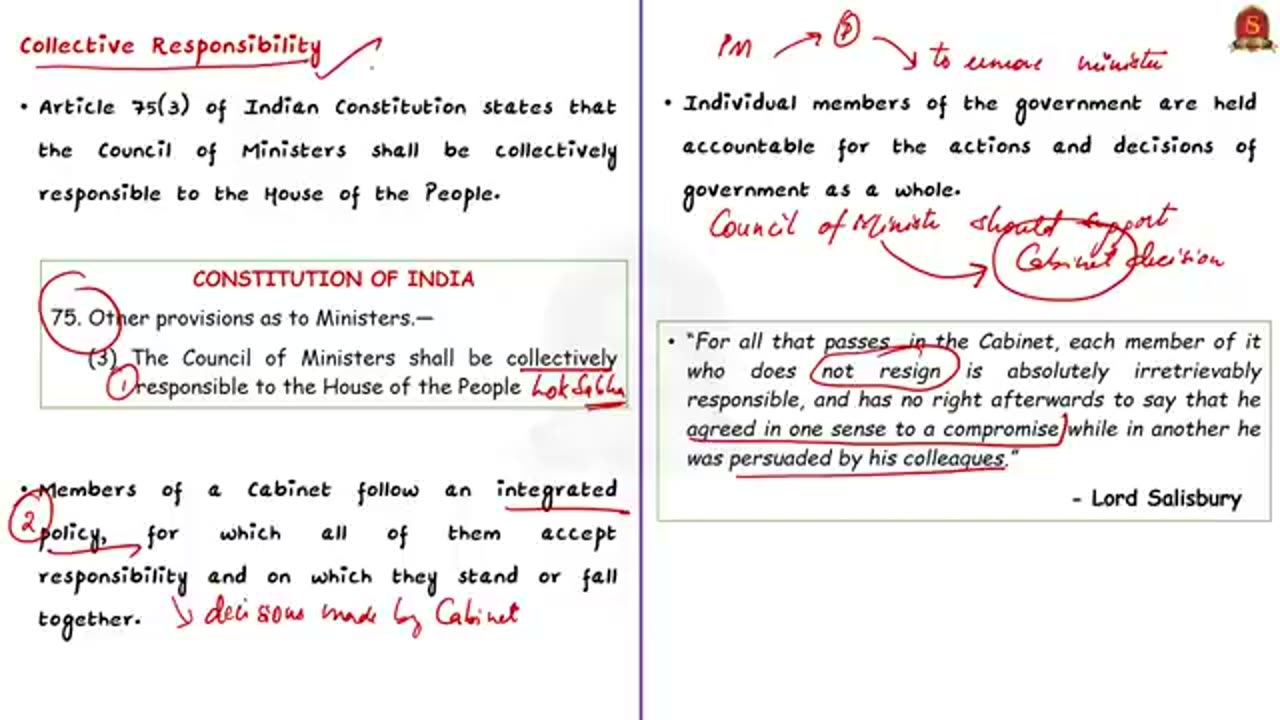 Collective Responsibility
• Article 75(3) of Indian Constitution states that
the Council of Ministers shall be collectively
responsible to the House of the People.
CONSTITUTION OF INDIA
75. Other provisions as to Ministers.—
(3) The Council of Ministers shall be collectively
1 responsible to the House of the People Lok Sabha
• Members of a Cabinet follow an integrated
2 policy, for which all of them accept
responsibility and on which they stand or fall
together. decisions made by Cabinet
PM P
to remove minister
• Individual members of the government are held
accountable for the actions and decisions of
government as a whole.
Council of Ministe should support
Cabinet decision
• "For all that passes in the Cabinet, each member of it
who does not resign is absolutely irretrievably
responsible, and has no right afterwards to say that he
agreed in one sense to a compromise while in another he
was persuaded by his colleagues."
- Lord Salisbury
S